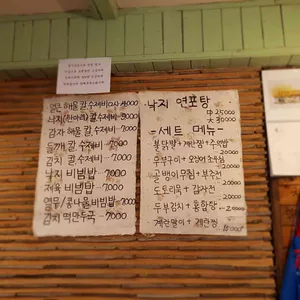 얼큰 해물 칼수제비
낙지(한마리) 칼수제비 7000
감자 해물 칼수제비 7000
들깨 칼수제비 7000
김치 칼수제비 7000
낙지 비빔밥 7000
제육 비빔밥 7000
열무/콩나물비빔밥 7000
김치 떡만두국 7000
낙지 연포탕
中 25000
大 30000
-세트 메뉴-
불닭발+계란찜+주먹밥
20000
두부구이+오징어초무침
20000
골뱅이무침+부추전
20000
도토리묵+감자전
20000
두부김치+홍합탕
20000
계란말이+계란찜
15000